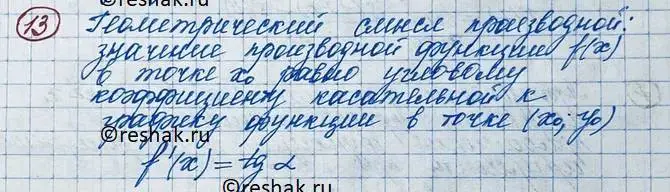 13 Геометрический смысл производной:
значение производной функции f(x)
в точке x₀ равно угловому
коэффициенту касательной к
графику функции в точке (x₀; y₀)
f'(x) = tg α
©reshak.ru
©reshak.ru
©reshak.ru